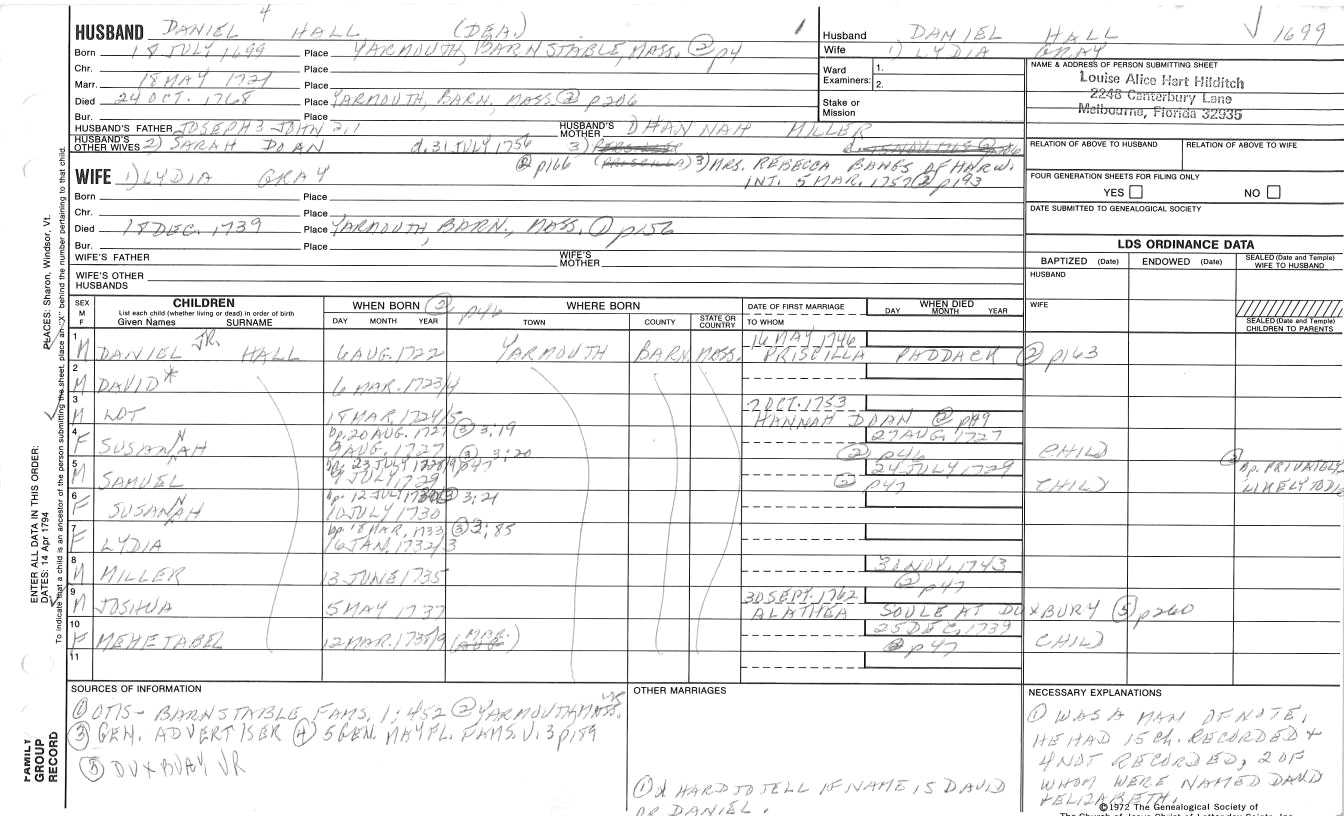 HUSBAND DANIEL 4 HALL (DEA.) 1
Born 18 JULY 1699 Place YARMOUTH, BARNSTABLE, MASS. ② p4
Chr. Place
Marr. 18 MAY 1721 Place
Died 24 OCT. 1768 Place YARMOUTH, BARN. MASS. ② p206
Bur. Place
HUSBAND'S FATHER JOSEPH 3 JOHN 2,1 HUSBAND'S MOTHER HANNAH MILLER
HUSBAND'S OTHER WIVES 2) SARAH DOAN d. 31 JULY 1756 3)
② p166 (PRISCILLA) 3) MRS. REBECCA BANGS OF HARW.
INT. 5 MAR. 1757 ② p193
WIFE 1) LYDIA GRAY
Born Place
Chr. Place
Died 18 DEC. 1739 Place YARMOUTH, BARN., MASS. ① p156
Bur. Place
WIFE'S FATHER WIFE'S MOTHER
WIFE'S OTHER HUSBANDS
Husband DANIEL HALL √ 1699
Wife 1) LYDIA GRAY
Ward Examiners: 1.
2.
Stake or Mission
NAME & ADDRESS OF PERSON SUBMITTING SHEET
Louise Alice Hart Hilditch
2248 Canterbury Lane
Melbourne, Florida 32935
RELATION OF ABOVE TO HUSBAND RELATION OF ABOVE TO WIFE
FOUR GENERATION SHEETS FOR FILING ONLY
YES NO
DATE SUBMITTED TO GENEALOGICAL SOCIETY
LDS ORDINANCE DATA
BAPTIZED (Date) ENDOWED (Date) SEALED (Date and Temple) WIFE TO HUSBAND
HUSBAND
WIFE
SEALED (Date and Temple) CHILDREN TO PARENTS
SEX M F
CHILDREN
List each child (whether living or dead) in order of birth
Given Names SURNAME
WHEN BORN ② p46
DAY MONTH YEAR
WHERE BORN
TOWN COUNTY STATE OR COUNTRY
DATE OF FIRST MARRIAGE
TO WHOM
WHEN DIED
DAY MONTH YEAR
1 M DANIEL JR. HALL 6 AUG. 1722 YARMOUTH BARN. MASS. 16 MAY 1746 PRISCILLA PADDACK ② p163
2 M DAVID* 6 MAR. 1723/4
3 M LOT 18 MAR. 1724/5 7 OCT. 1753 HANNAH DOAN ② p99
4 F SUSANNAH bp. 20 AUG. 1727 ③ 3:19
9 AUG. 1727 27 AUG. 1727 ② p46 CHILD
5 M SAMUEL bp. 23 JULY 1728/9 ③ 3:20 p47
9 JULY 1729 24 JULY 1729 ② p47 CHILD ③ bp. PRIVATELY LIKELY TO DIE
6 F SUSANNAH bp. 12 JULY 1730 ③ 3:21
10 JULY 1730
7 F LYDIA bp. 18 MAR. 1733 ③ 3:85
16 JAN. 1732/3
8 M MILLER 13 JUNE 1735 3 NOV. 1743 ② p47
9 M JOSHUA 5 MAY 1737 30 SEPT. 1762 ALATHEA SOULE AT DUXBURY ⑤ p260
10 F MEHETABEL 12 MAR. 1738/9 25 DEC. 1739 ② p47 CHILD
11
SOURCES OF INFORMATION
① OTIS - BARNSTABLE FAMS. 1:452 ② YARMOUTH MASS. VR
③ GEN. ADVERTISER ④ 5 GEN. MAYFL. FAMS. V.3 p159
⑤ DUXBURY VR
OTHER MARRIAGES
① * HARD TO TELL IF NAME IS DAVID
OR DANIEL.
NECESSARY EXPLANATIONS
① WAS A MAN OF NOTE,
HE HAD 15 CH. RECORDED +
4 NOT RECORDED, 2 OF
WHOM WERE NAMED DAVID
+ ELIZABETH.
©1972 The Genealogical Society of
The Church of Jesus Christ of Latter-day Saints, Inc.
PLACES: Sharon, Windsor, Vt.
ENTER ALL DATA IN THIS ORDER:
DATES: 14 Apr 1794
To indicate that a child is an ancestor of the person submitting the sheet, place an "X" behind the number pertaining to that child.
FAMILY
GROUP
RECORD